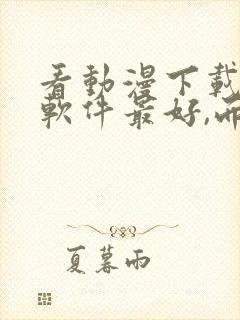 看動漫下載
軟件最好,而
夏暮雨